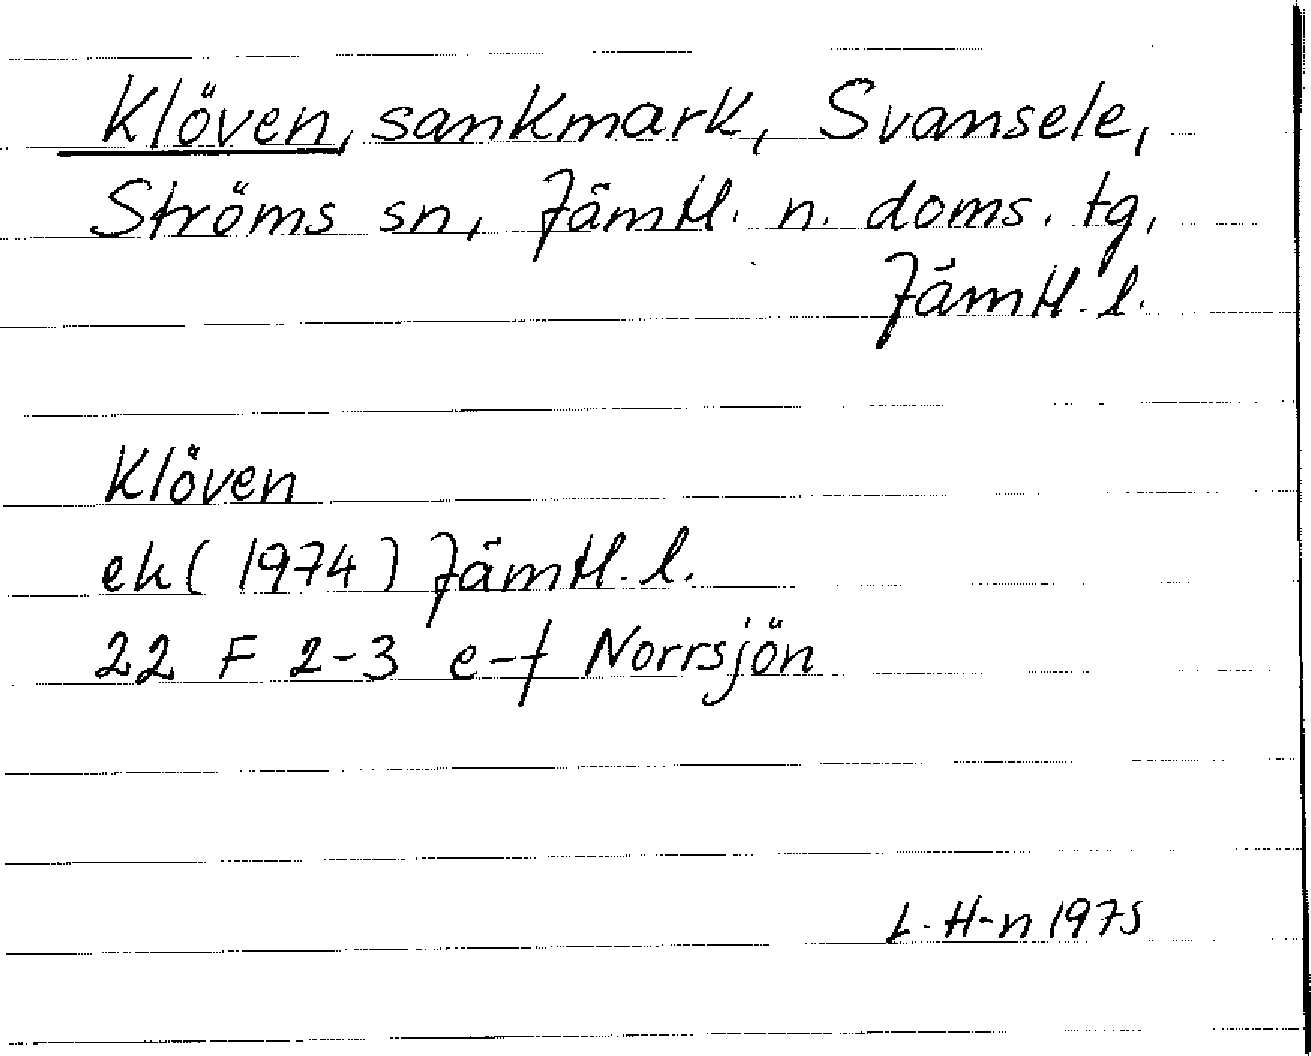 Klöven, sankmark, Svansele,
Ströms sn, Jämtl. n. doms. tg,
Jämtl. l.
Klöven
ek (1974) Jämtl. l.
22 F 2-3 e-f Norrsjön
L. H-n 1975